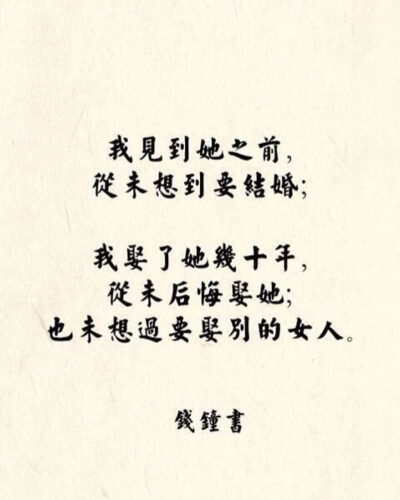 我見到她之前,
從未想到要結婚;
我娶了她幾十年,
從未后悔娶她;
也未想過要娶別的女人。
錢鐘書